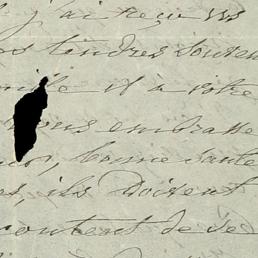 j'ai reçu vos
tendres souven
il a votre
vous embrasse
bonne sante
ils doivent
content de se